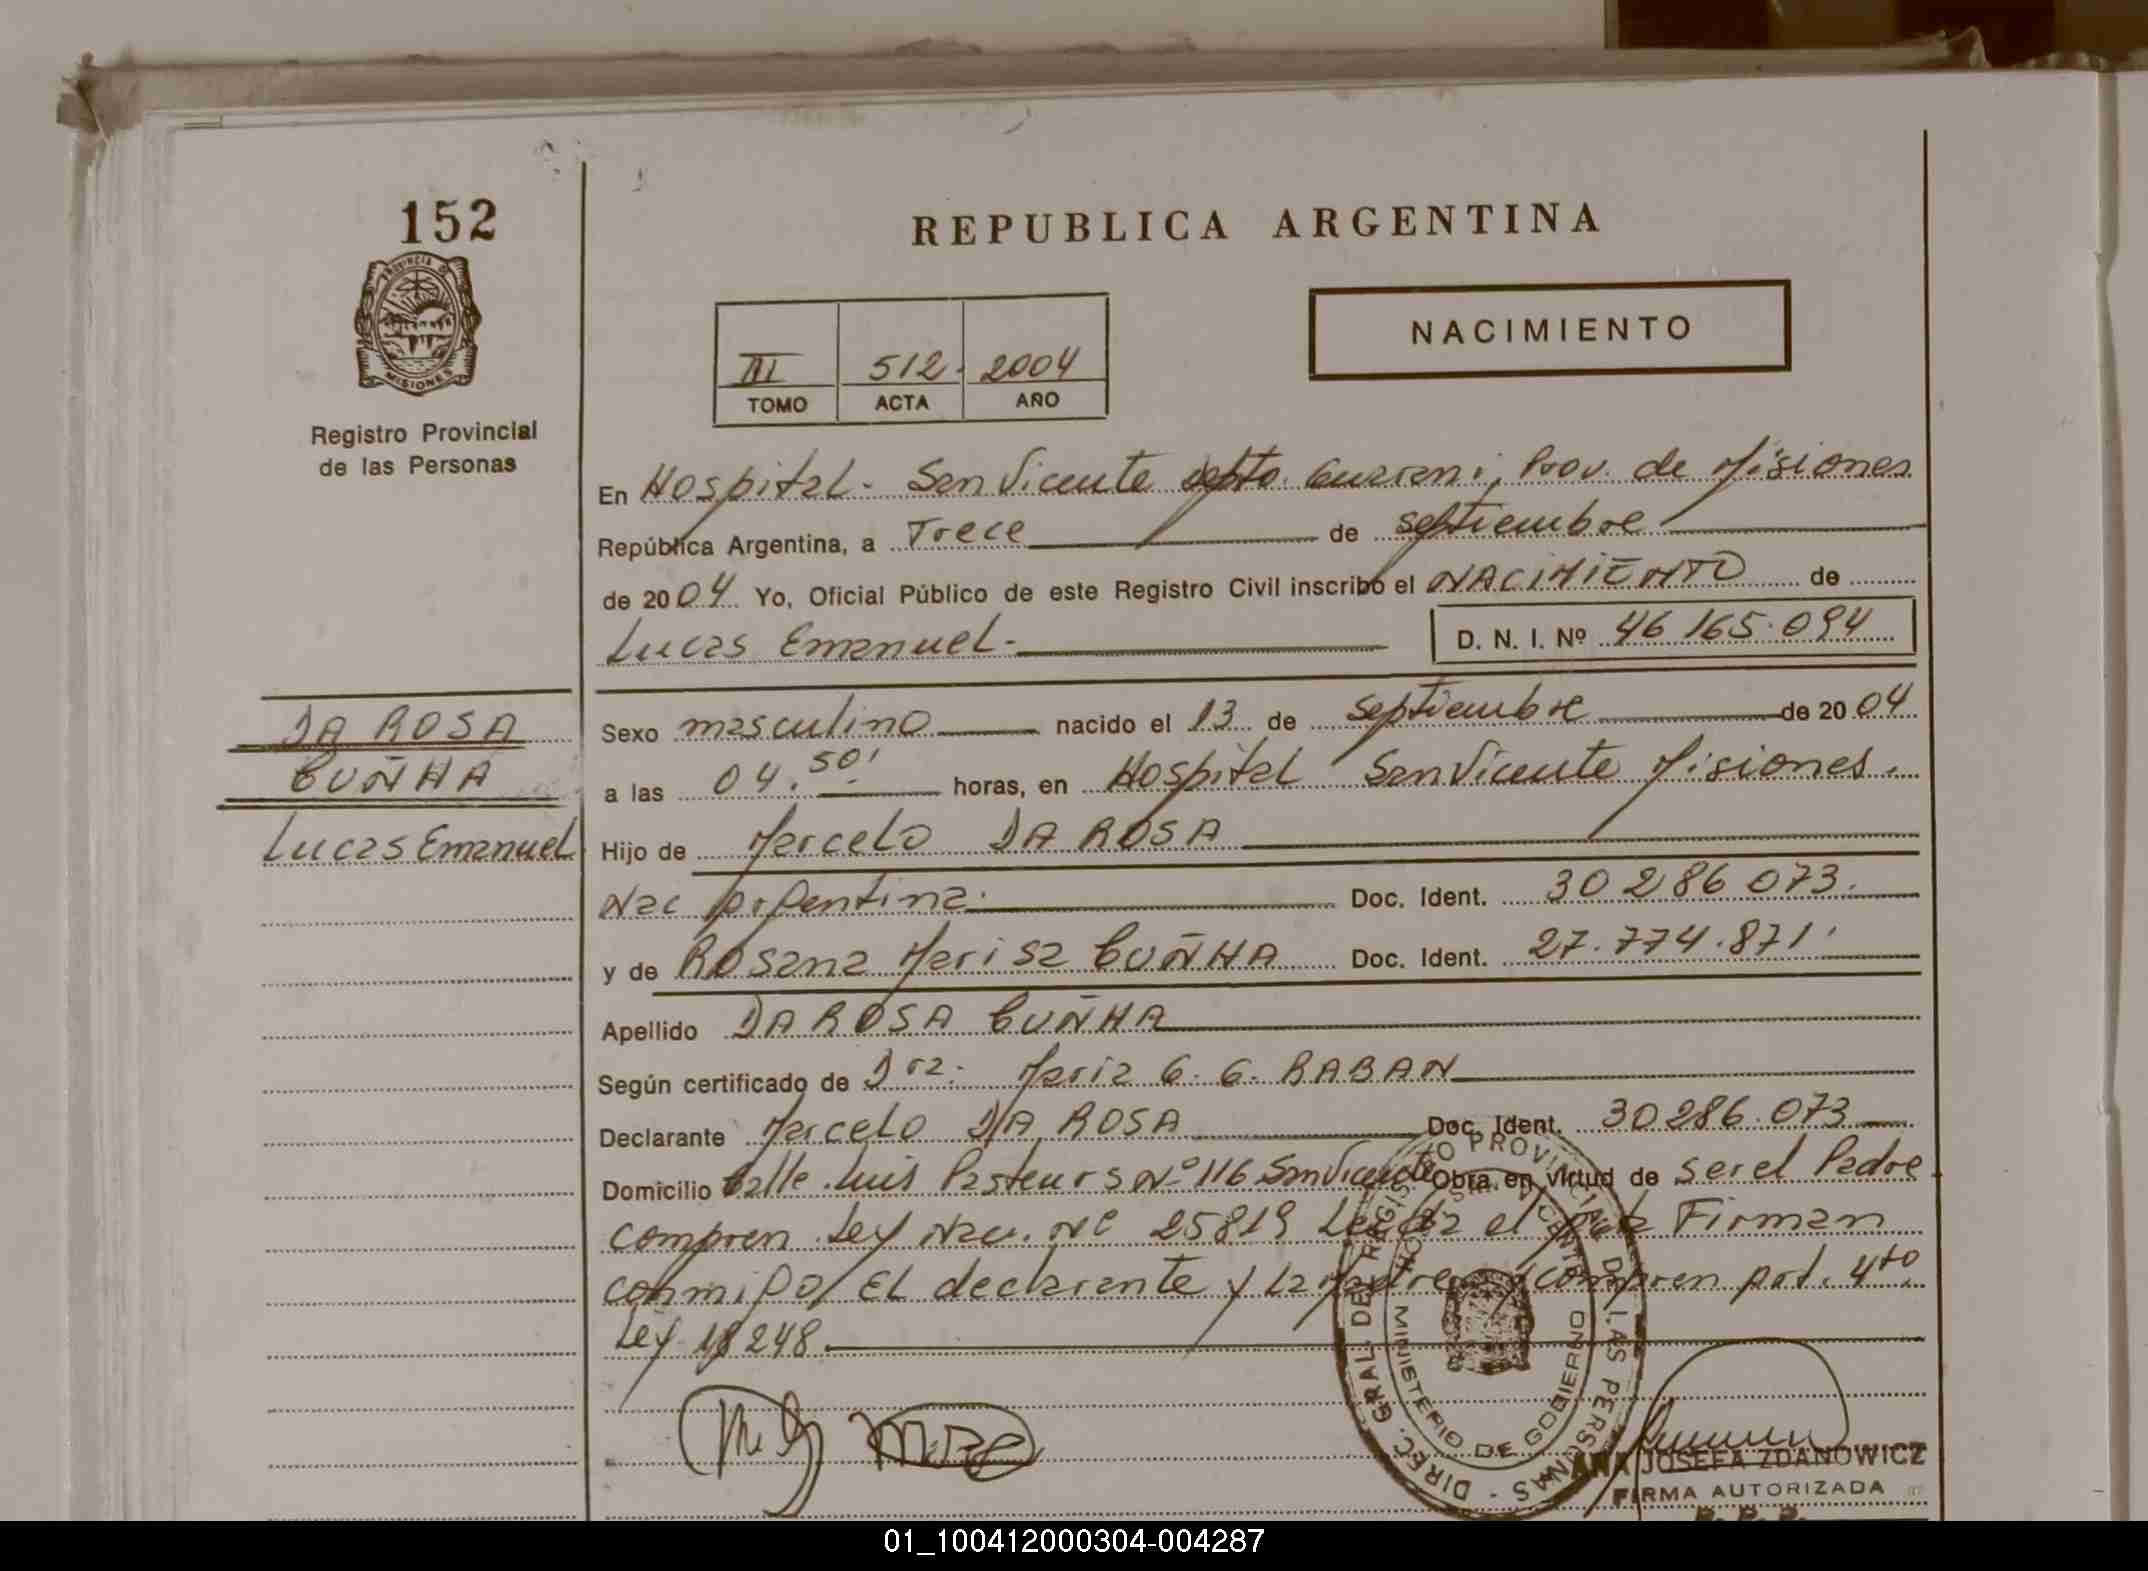 152
PROVINCIA DE
MISIONES
Registro Provincial
de las Personas
REPUBLICA ARGENTINA
NACIMIENTO
III 512 2004
TOMO ACTA AÑO
En Hospital - San Vicente depto. Guarani, Prov. de Misiones
República Argentina, a Trece de septiembre
de 2004 Yo, Oficial Público de este Registro Civil inscribo el NACIMIENTO de
Lucas Emanuel - D. N. I. Nº 46 165.094
DA ROSA
CUÑHA
Lucas Emanuel
Sexo masculino nacido el 13 de septiembre de 2004
a las 04.50' horas, en Hospital San Vicente Misiones.
Hijo de Marcelo DA ROSA
Nac Argentina. Doc. Ident. 30 286 073.
y de Rosana Marisa CUÑHA Doc. Ident. 27.774.871
Apellido DA ROSA CUÑHA
Según certificado de Dra. Maria G. G. RABAN
Declarante Marcelo DA ROSA Doc. Ident. 30286.073
Domicilio Calle Luis Pasteur S Nº 116 San Vicente Obra en virtud de ser el Padre
compren Ley Nac. Nº 25819 Leida el acta Firman
conmigo El declarante y la madre compren Art. 4to
Ley 18248
DIREC. GRAL. DEL REGISTRO PROVINCIAL DE LAS PERSONAS -
MINISTERIO DE GOBIERNO
ANA JOSEFA ZDANOWICZ
FIRMA AUTORIZADA
R. P. P.
01_100412000304-004287